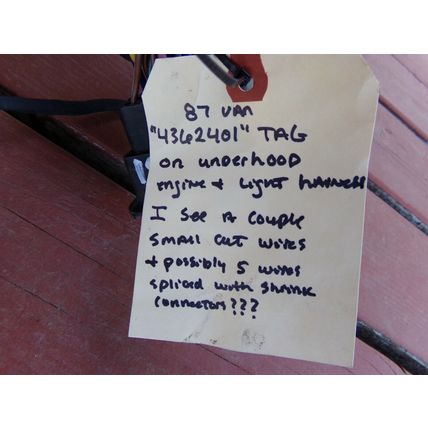 87 VAN
"4362401" TAG
on underhood
engine + light harness
I see a couple
small cut wires
+ possibly 5 wires
spliced with shrink
connectors???